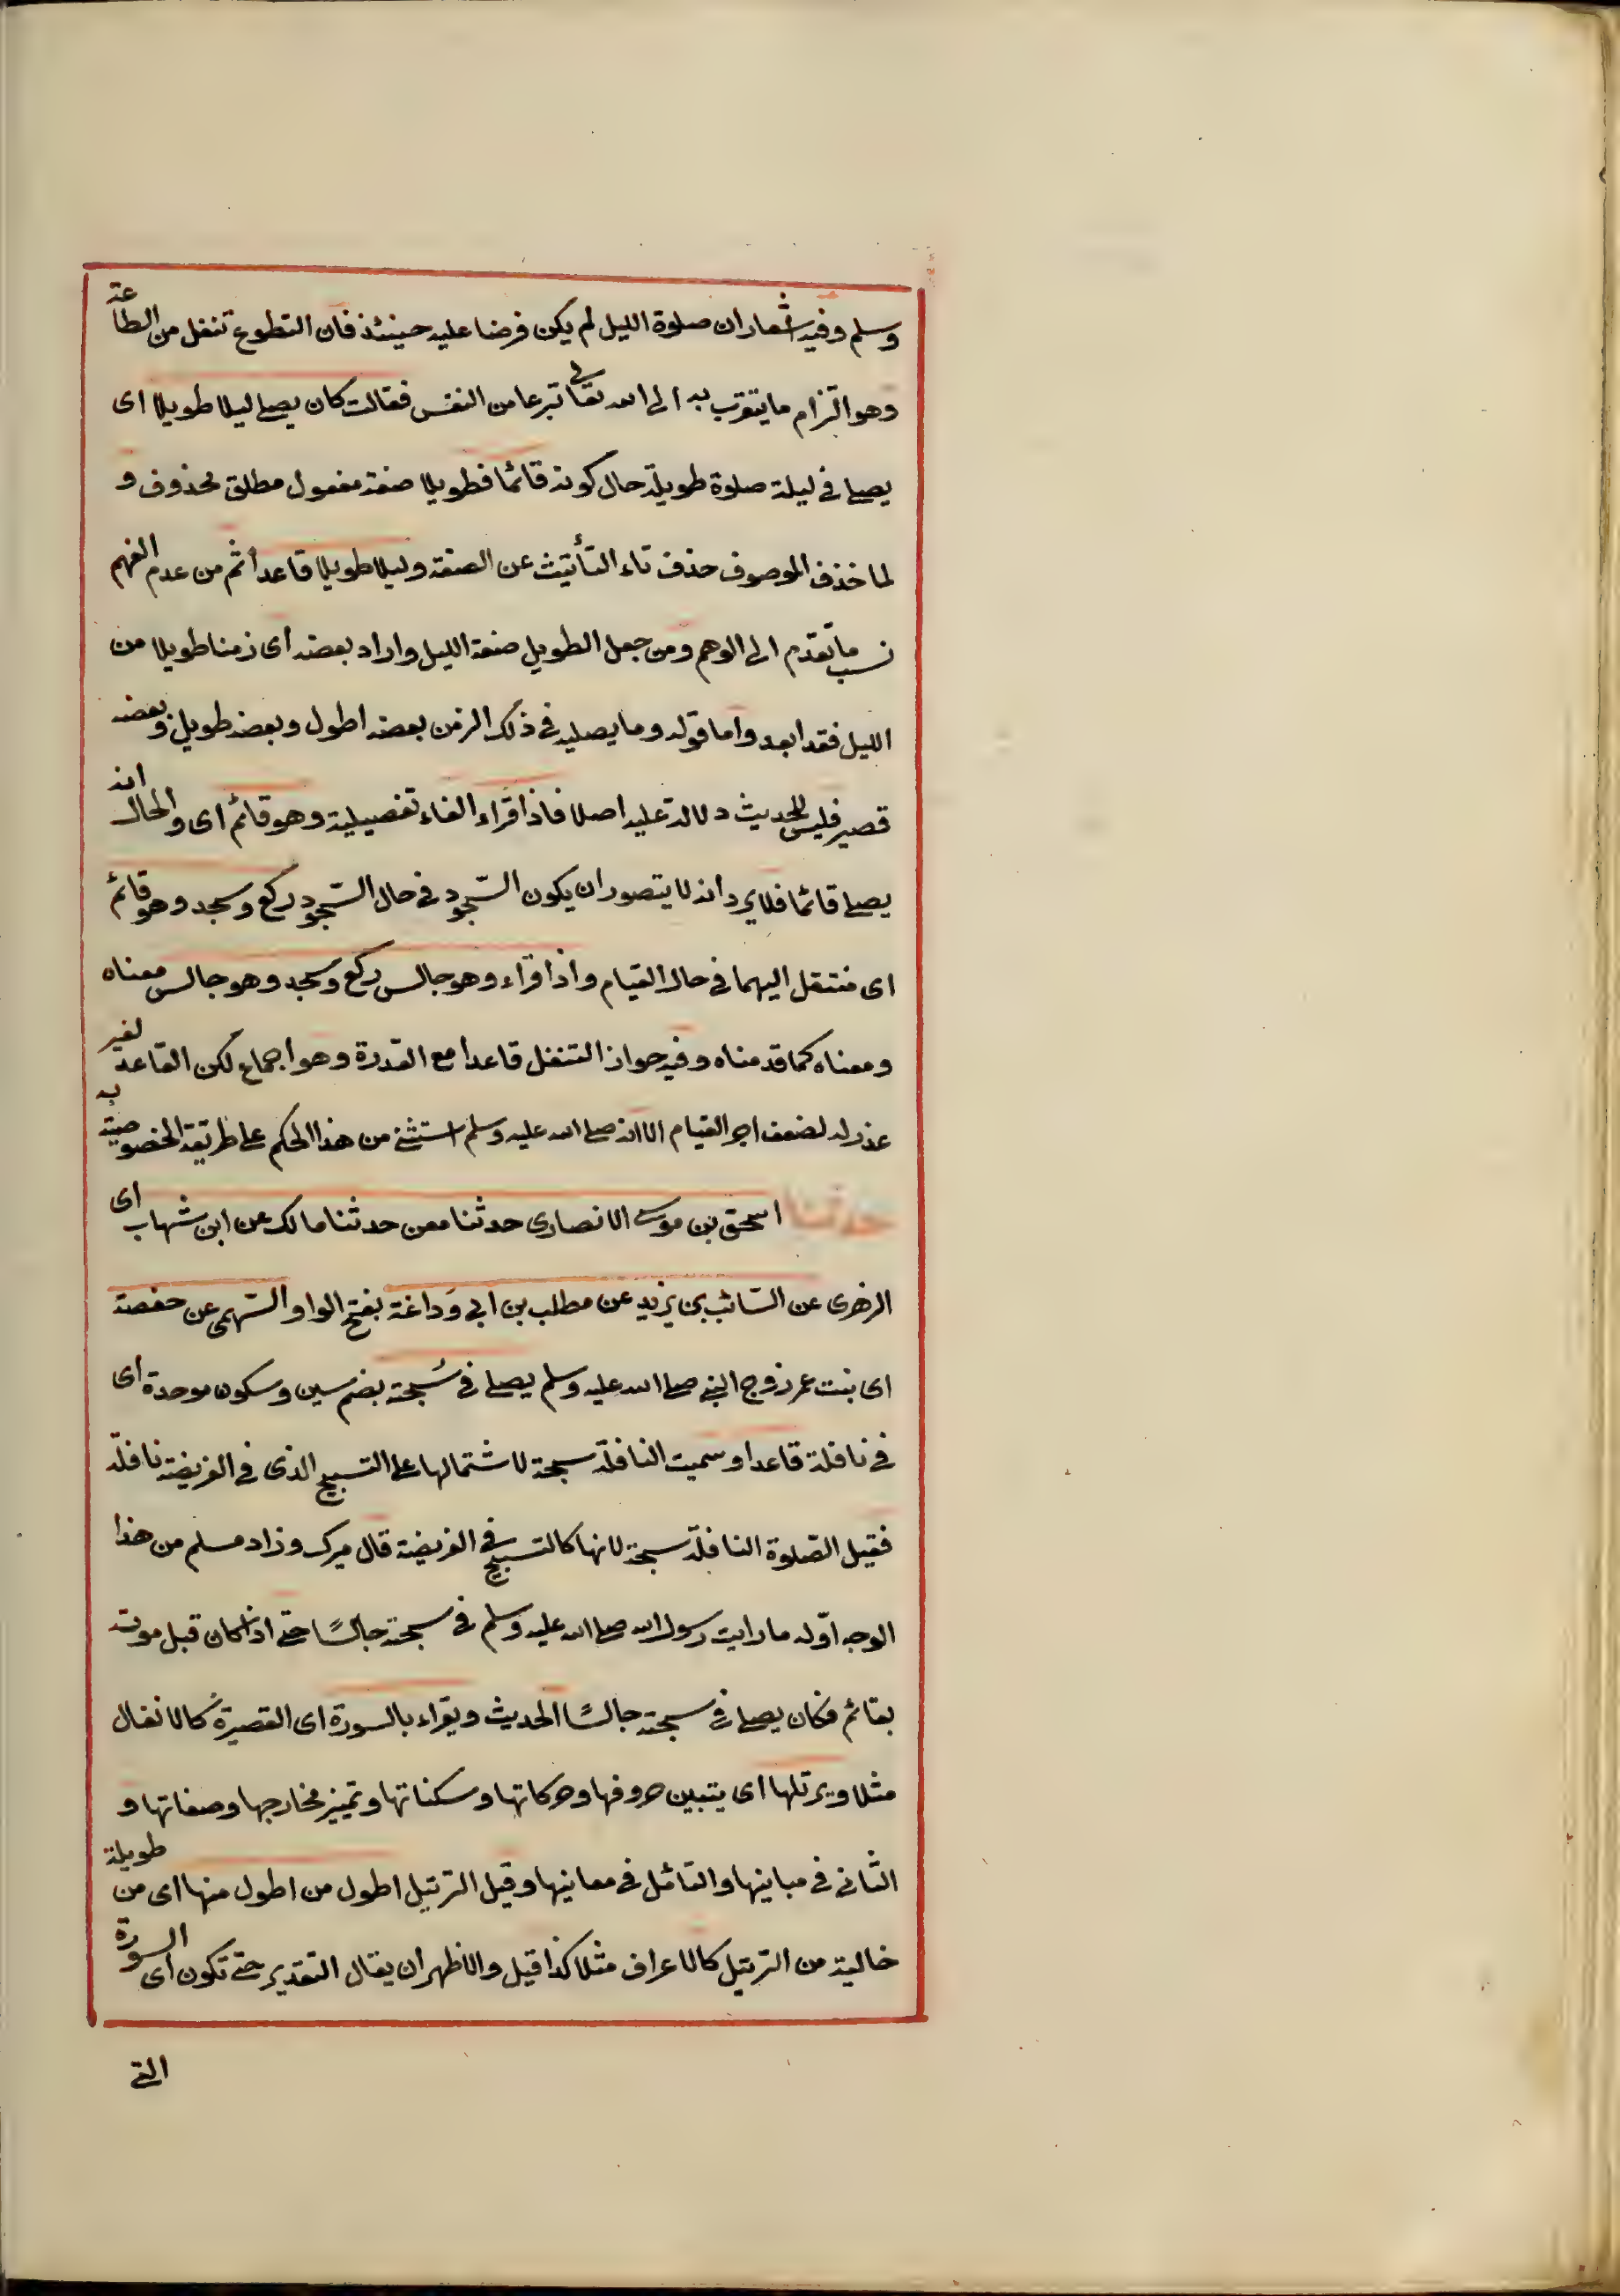 وسلم وفيه شعار ان صلوة الليل لم يكن فرضا عليه حينئذ فان التطوع تنفل من الطاعة
وهو التزام ما يتقرب به الى الله تعالى تبرعا من النفس فقالت كان يصلي ليلا طويلا اى
يصلي في ليلة صلوة طويلة حال كونه قائما فطويلا صفة مفعول مطلق محذوف و
لما حذف الموصوف حذف تاء التأنيث عن الصفة وليلا طويلا قاعدا ثم من عدم الفهم
نسب ما تقدم الى الوهم ومن جعل الطويل صفة الليل واراد بعضه اى زمنا طويلا من
الليل فقد ابعد واما قوله وما يصليه في ذلك الزمن بعضه اطول وبعضه طويل وبعضه
قصير فليس للحديث دلالة عليه اصلا فاذا قراء الفاء تفصيلية وهو قائم اى والحال انه
يصلي قائما فلا يرد انه لا يتصور ان يكون السّجود في حال السّجود ركع وسجد وهو قائم
اى منتقل اليهما في حال القيام واذا قراء وهو جالس ركع وسجد وهو جالس معناه
ومعناه كما قدمناه وفيه جواز التنفل قاعدا مع القدرة وهو اجماع لكن القاعد لغير
عذر له لضعف اجر القيام الا انه صلى الله عليه وسلم استثنى من هذا الحكم على طريقة الخصوصية به
حدثنا اسحق بن موسى الانصارى حدثنا معن حدثنا مالك عن ابن شهاب اى
الزهرى عن السّائب بن يزيد عن مطلب بن ابي وَداغة بفتح الواو السّهمى عن حفصة
اى بنت عمر زوج النبي صلى الله عليه وسلم يصلي في سُبحته بضم سين وسكون موحدة اى
في نافلة قاعدا وسميت النافلة سبحة لاشتمالها على التسبيح الذى في الفريضة نافلة
فقيل الصّلوة النافلة سبحة لانها كالتسبيح في الفريضة قال ميرك وزاد مسلم من هذا
الوجه اوّله ما رايت رسول الله صلى الله عليه وسلم في سبحته جالسًا حتى اذا كان قبل موته
بقائم فكان يصلي في سبحته جالسًا الحديث ويقراء بالسورة اى القصيرة كالانفال
مثلا ويرتلها اى يتبين حروفها وحركاتها وسكناتها وتميز مخارجها وصفاتها و
الثانى في مبانيها والتأمل في معانيها وقيل الترتيل اطول من اطول منها اى من طويلة
خالية من الترتيل كالاعراف مثلا كذا قيل والاظهر ان يقال التقدير حتى تكون اى السورة
التى